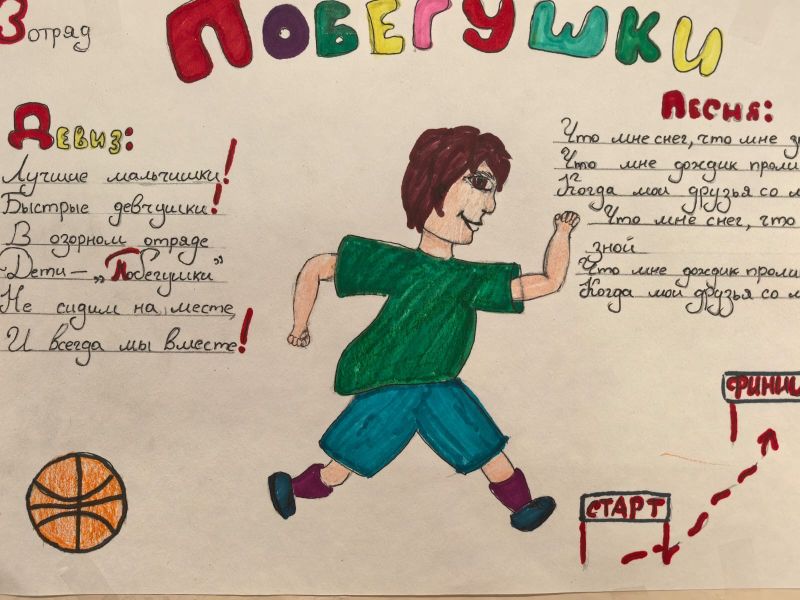 3 отряд
ПОБЕГУШКИ
Девиз:
Лучшие мальчишки!
Быстрые девчушки!
В озорном отряде
Дети – „Побегушки"
Не сидим на месте,
И всегда мы вместе!
Песня:
Что мне снег, что мне
Что мне дождик
Когда мои друзья со
Что мне снег, что
зной
Что мне дождик
Когда мои друзья со
СТАРТ